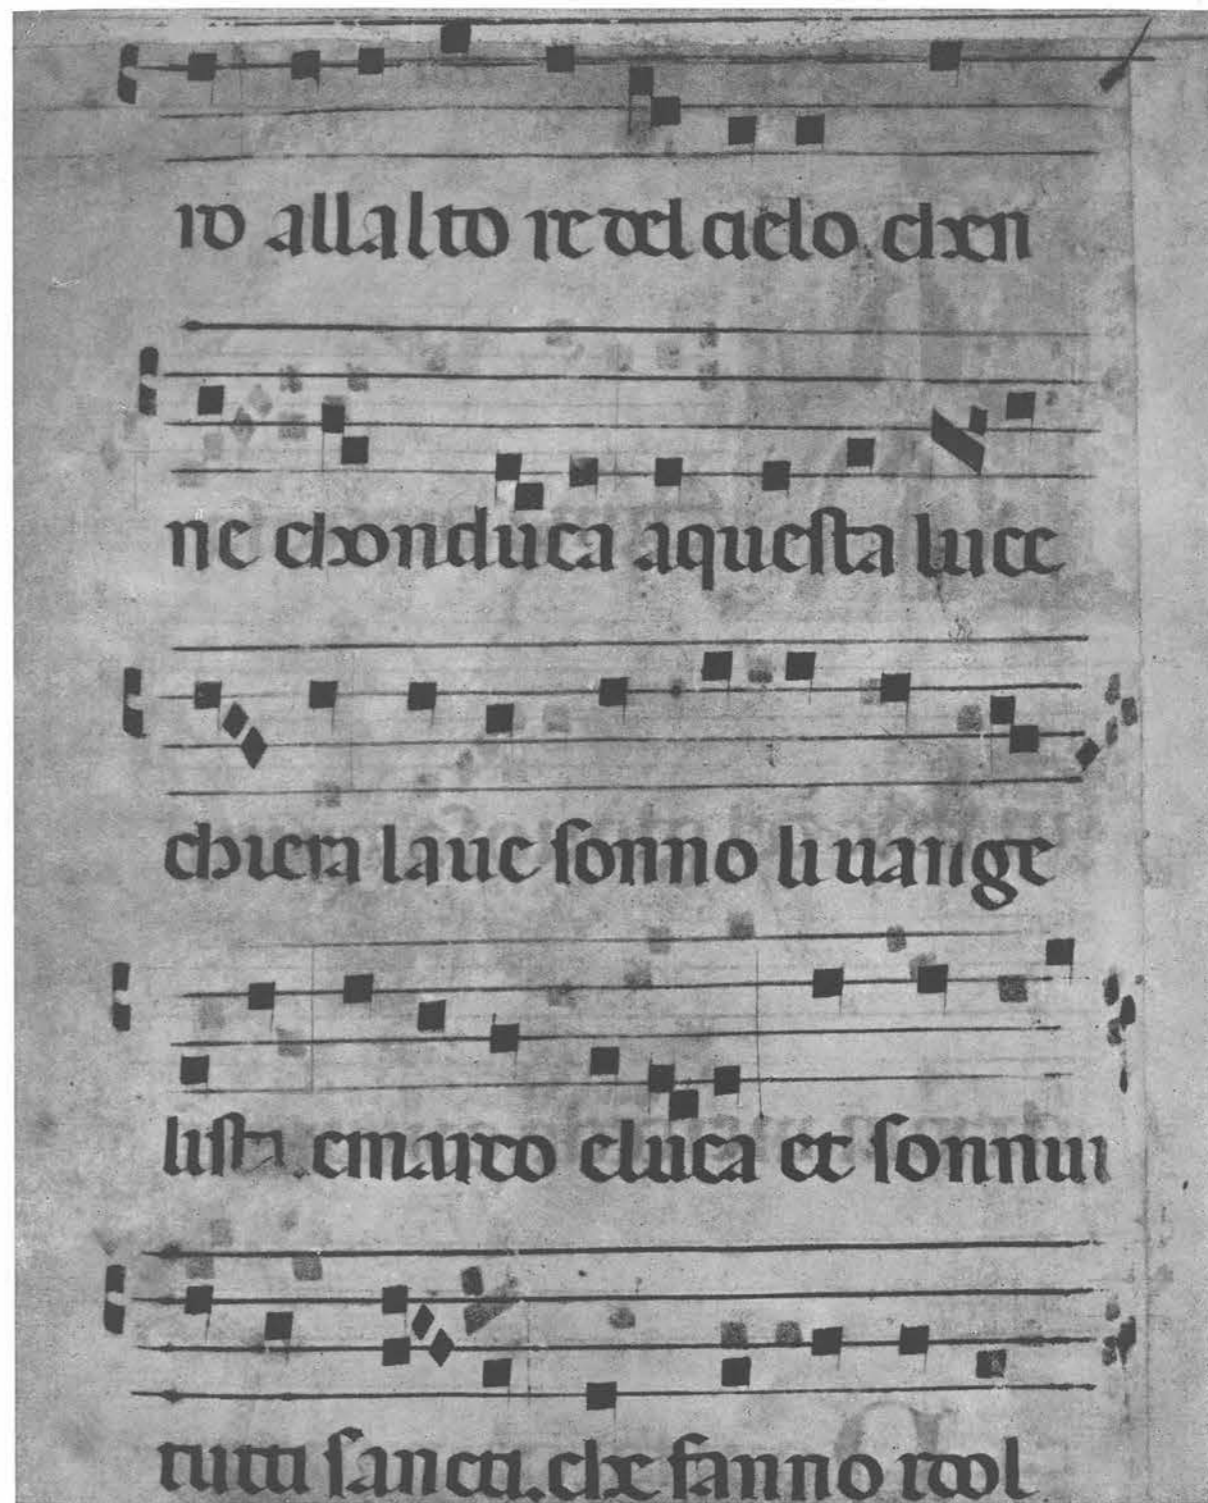 ro allalto re del cielo. chen
ne chonduca aquesta luce
chiera laue sonno li uange
listi. emarco eluca et sonnui
tutti sancti. che fanno dol